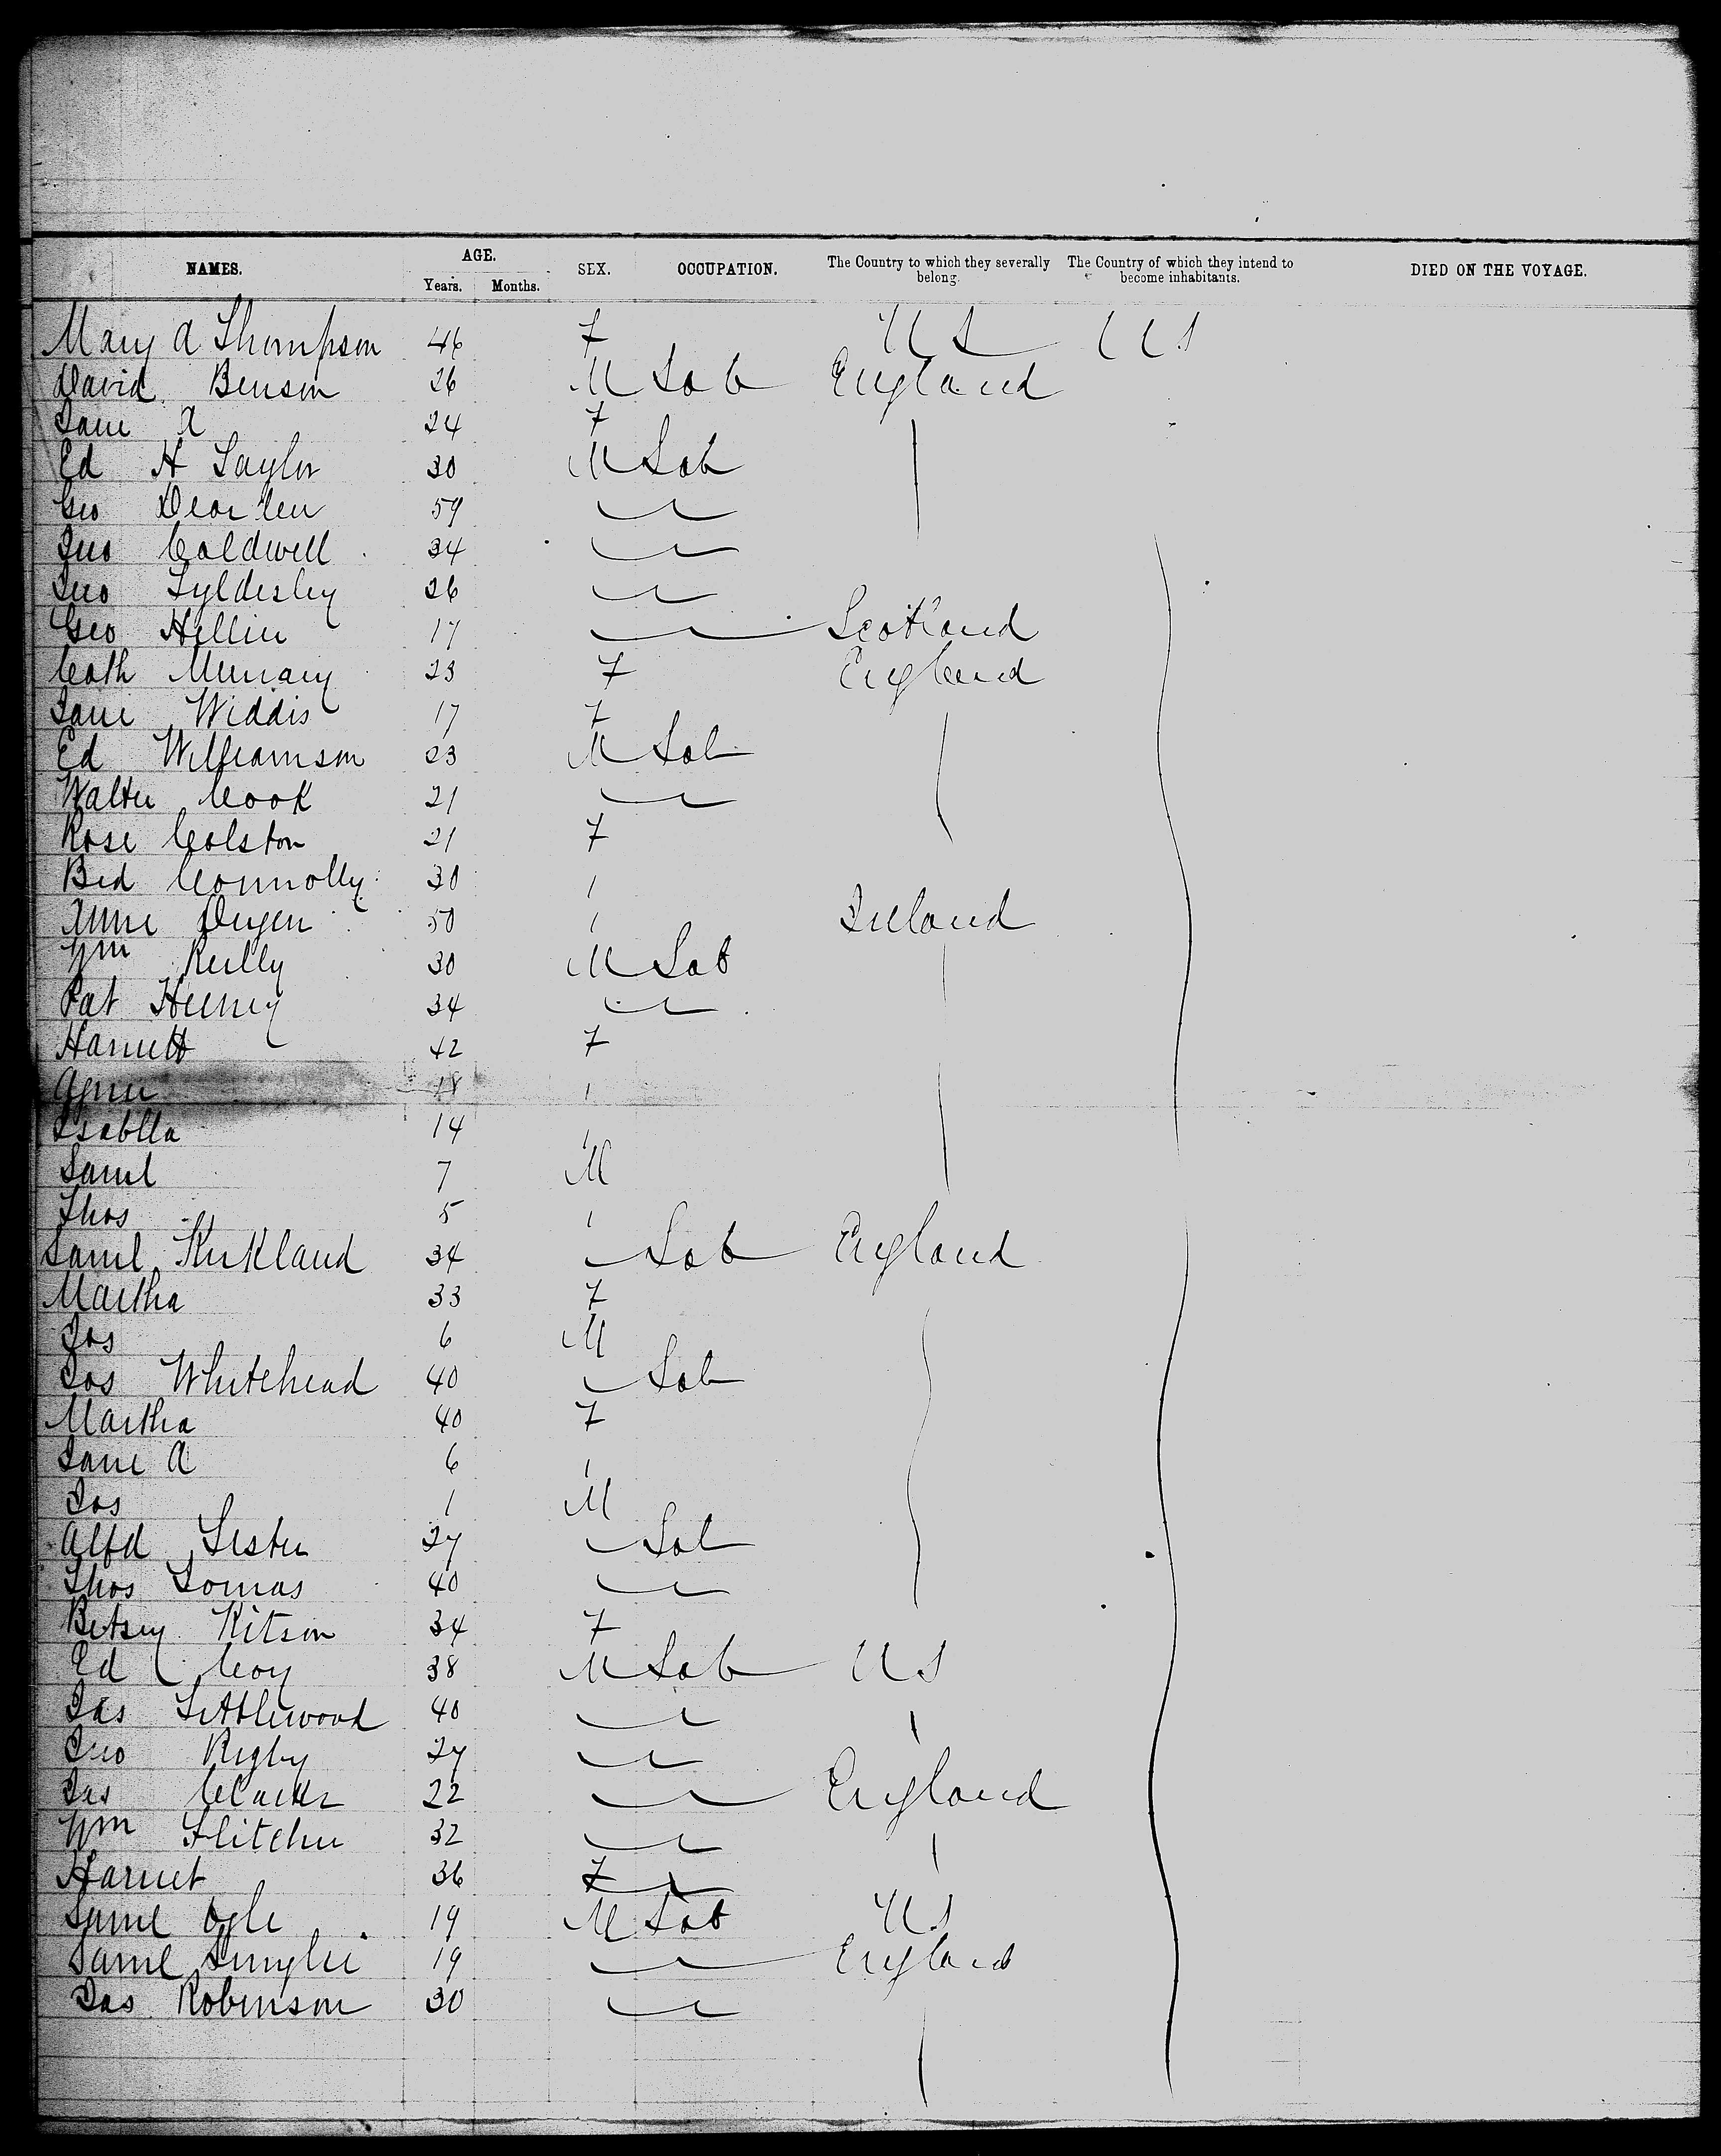 NAMES. AGE. SEX. OCCUPATION. The Country to which they severally belong. The Country of which they intend to become inhabitants. DIED ON THE VOYAGE.
Years. Months.
Mary A Thompson 46 F US US
David Benson 26 M Lab England
Jane A 24 F
Ed H Taylor 30 M Lab
Geo Dearden 59
Jno Caldwell 34
Jno Tyldesley 26
Geo Hillin 17 Scotland
Cath Murrany 23 F England
Jane Widdis 17 F
Ed Williamson 23 M Lab
Walter Cook 21
Rose Colston 21 F
Bid Connolly 30 1
Anne 50 1 Ireland
Wm Reilly 30 M Lab
Pat Heeney 34
Harriett 42 F
Agnes 18 1
Isablla 14 1
Saml 7 M
Thos 5 1
Saml Kirkland 34 Lab England
Martha 33 F
Jos 6 M
Jos Whitehead 40 Lab
Martha 40 F
Jane A 6 1
Jos 1 M
Alfd Lester 27 Lab
Thos Lomas 40
Betsey Kitson 34 F
Ed Coy 38 M Lab US
Jas Littlewood 40
Jno Rigby 27
Jas 22 England
Wm Flitcher 32
Harriet 36 F
Saml Ogle 19 M Lab US
Saml 19 England
Jas Robinson 30